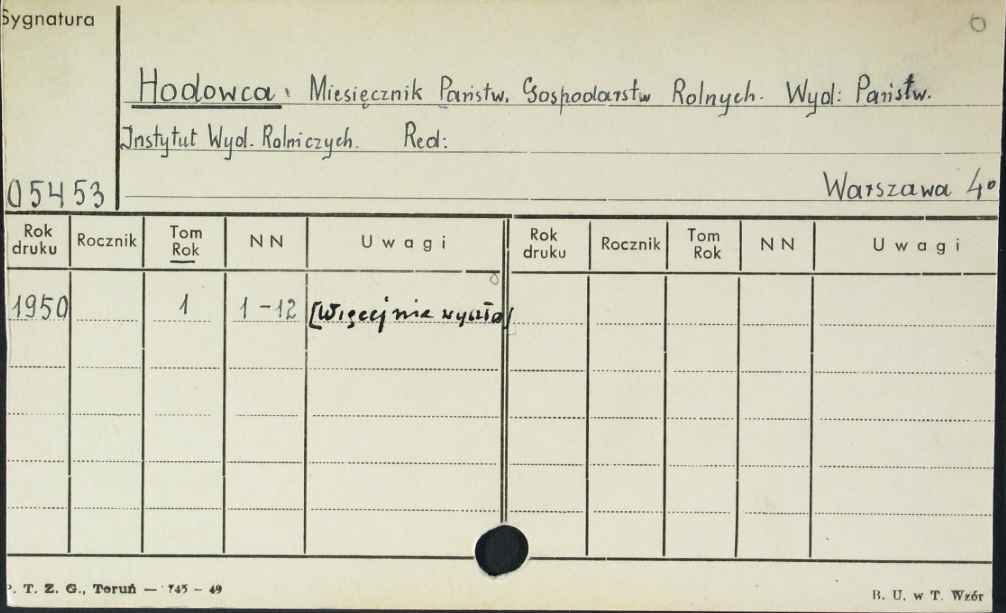 Sygnatura
Hodowca. Miesięcznik Państw. Gospodarstw Rolnych. Wyd: Państw.
Instytut Wyd. Rolniczych. Red:
05453
Warszawa 4°
Rok druku Rocznik Tom Rok NN Uwagi Rok druku Rocznik Tom Rok NN Uwagi
1950 1 1-12 [Więcej nie wyszło]
P. T. Z. G., Toruń — 745 - 49
B. U. w T. Wzór